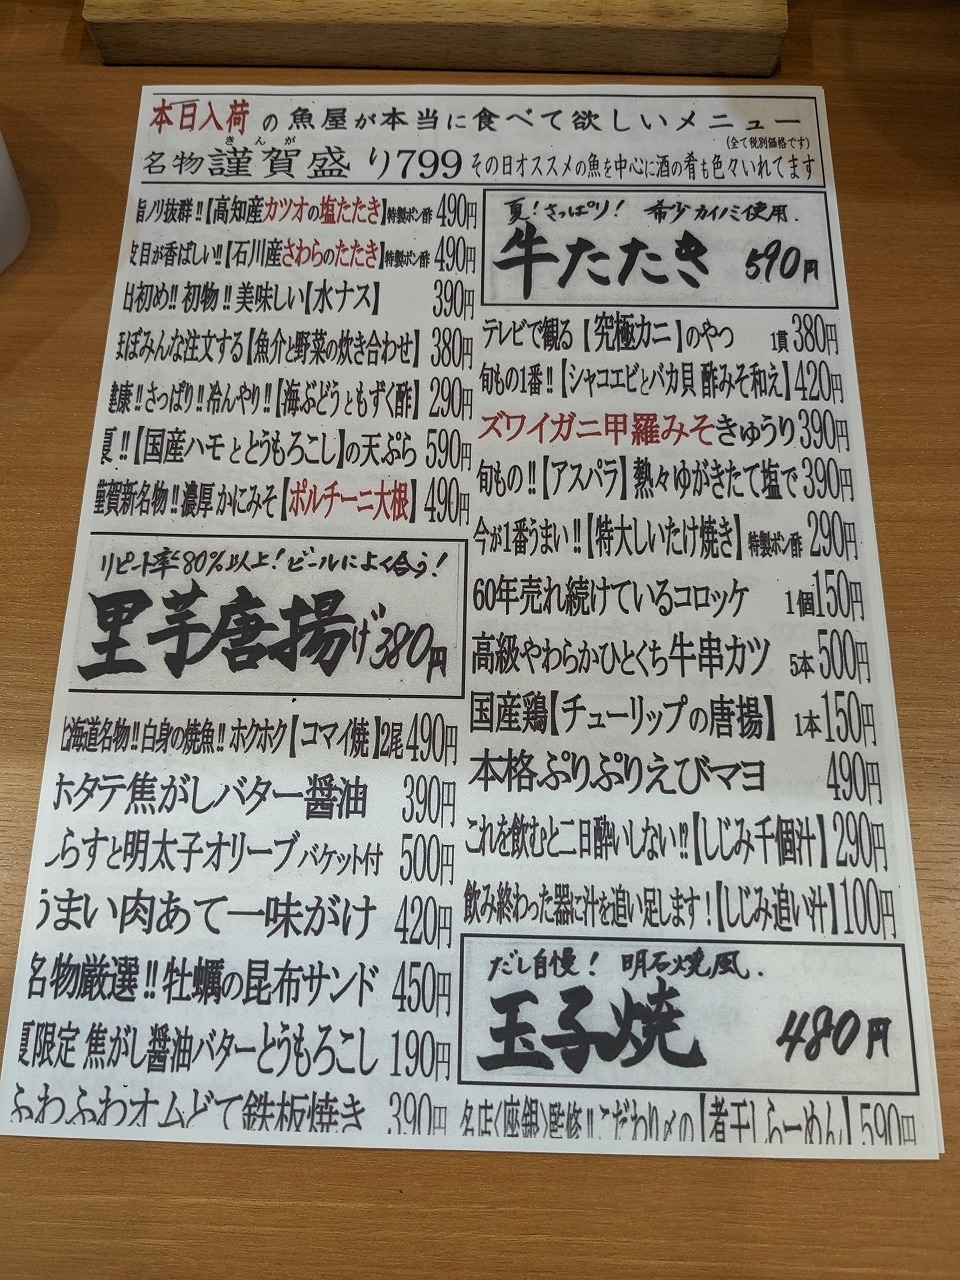 本日入荷の魚屋が本当に食べて欲しいメニュー
(全て税別価格です)
きんが
名物 謹賀盛り799 その日オススメの魚を中心に酒の肴も色々いれてます
脂ノリ抜群!!【高知産カツオの塩たたき】特製ポン酢 490円
皮目が香ばしい!!【石川産さわらのたたき】特製ポン酢 490円
初め!! 初物!! 美味しい【水ナス】 390円
ほぼみんな注文する【魚介と野菜の炊き合わせ】 380円
健康!! さっぱり!! 冷んやり!!【海ぶどうともずく酢】 290円
夏!!【国産ハモととうもろこし】の天ぷら 590円
謹賀新名物!! 濃厚かにみそ【ポルチーニ大根】 490円
リピート率80%以上! ビールによく合う!
里芋唐揚げ 380円
北海道名物!! 白身の焼魚!! ホクホク【コマイ焼】2尾 490円
ホタテ焦がしバター醤油 390円
しらすと明太子オリーブ バケット付 500円
うまい肉あて一味がけ 420円
名物厳選!! 牡蠣の昆布サンド 450円
夏限定 焦がし醤油バターとうもろこし 190円
ふわふわオムどて鉄板焼き 390円
夏! さっぱり! 希少カイノミ使用.
牛たたき 590円
テレビで観る【究極カニ】のやつ 1貫 380円
旬もの1番!!【シャコエビとバカ貝 酢みそ和え】 420円
ズワイガニ甲羅みそきゅうり 390円
旬もの!!【アスパラ】熱々ゆがきたて塩で 390円
今が1番うまい!!【特大しいたけ焼き】特製ポン酢 290円
60年売れ続けているコロッケ 1個 150円
高級やわらかひとくち牛串カツ 5本 500円
国産鶏【チューリップの唐揚】 1本 150円
本格ぷりぷりえびマヨ 490円
これを飲むと二日酔いしない!?【しじみ千個汁】 290円
飲み終わった器に汁を追い足します!【しじみ追い汁】 100円
だし自慢! 明石焼風.
玉子焼 480円
名店〈座銀〉監修!! こだわり〆の【煮干しらーめん】 590円